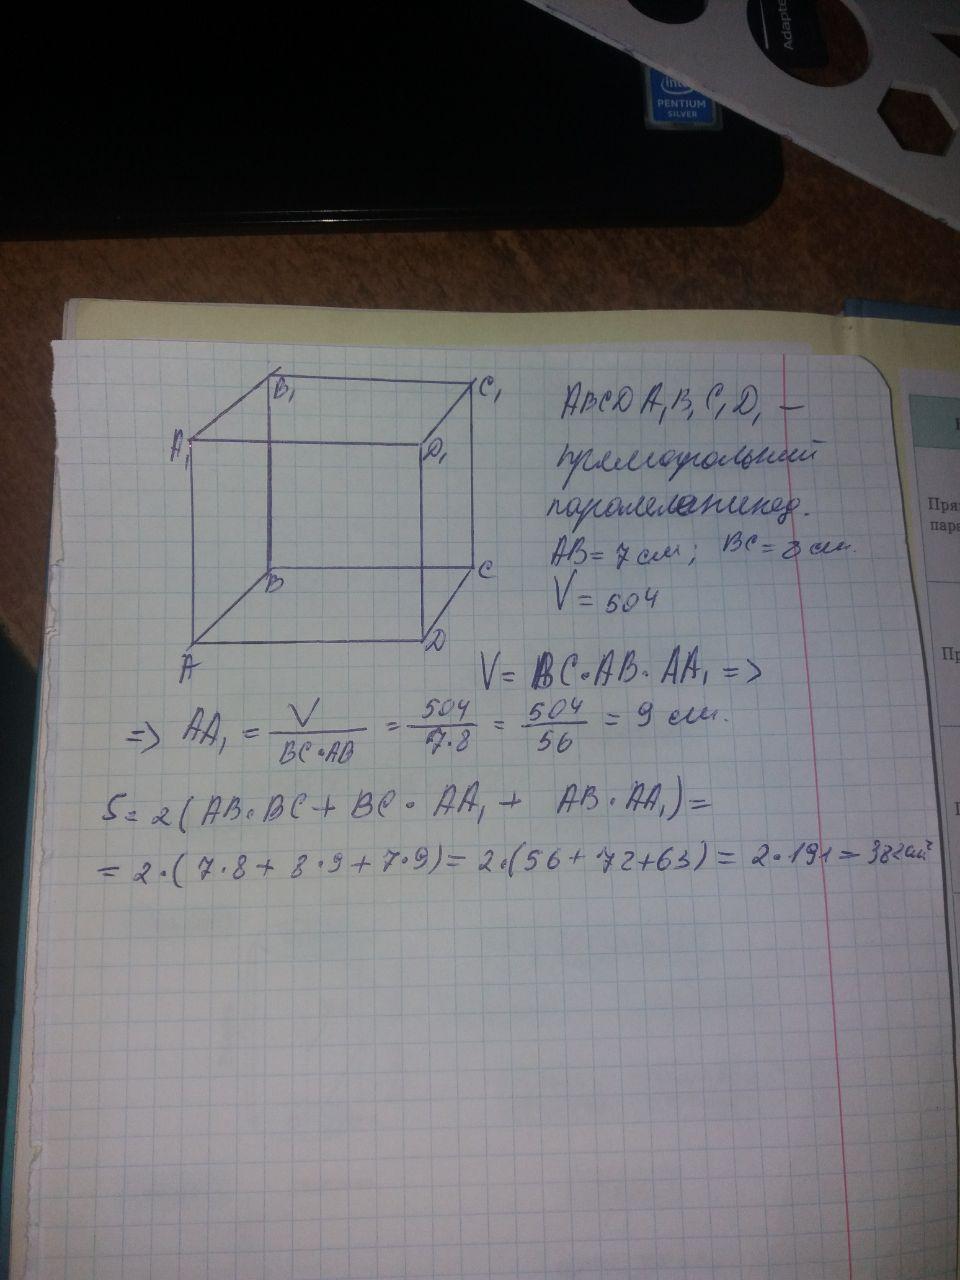 Adapte
intel
PENTIUM
SILVER
B₁
C₁
A₁
D₁
B
C
A
D
ABCDA₁B₁C₁D₁ —
прямоугольний
паралелепипед.
AB = 7 см; BC = 8 см.
V = 504
V = BC · AB · AA₁ =>
=> AA₁ = V / BC · AB = 504 / 7·8 = 504 / 56 = 9 см.
S = 2 ( AB · BC + BC · AA₁ + AB · AA₁ ) =
= 2 · ( 7 · 8 + 8 · 9 + 7 · 9 ) = 2 · ( 56 + 72 + 63 ) = 2 · 191 = 382 см²
Пря
пара
Пр